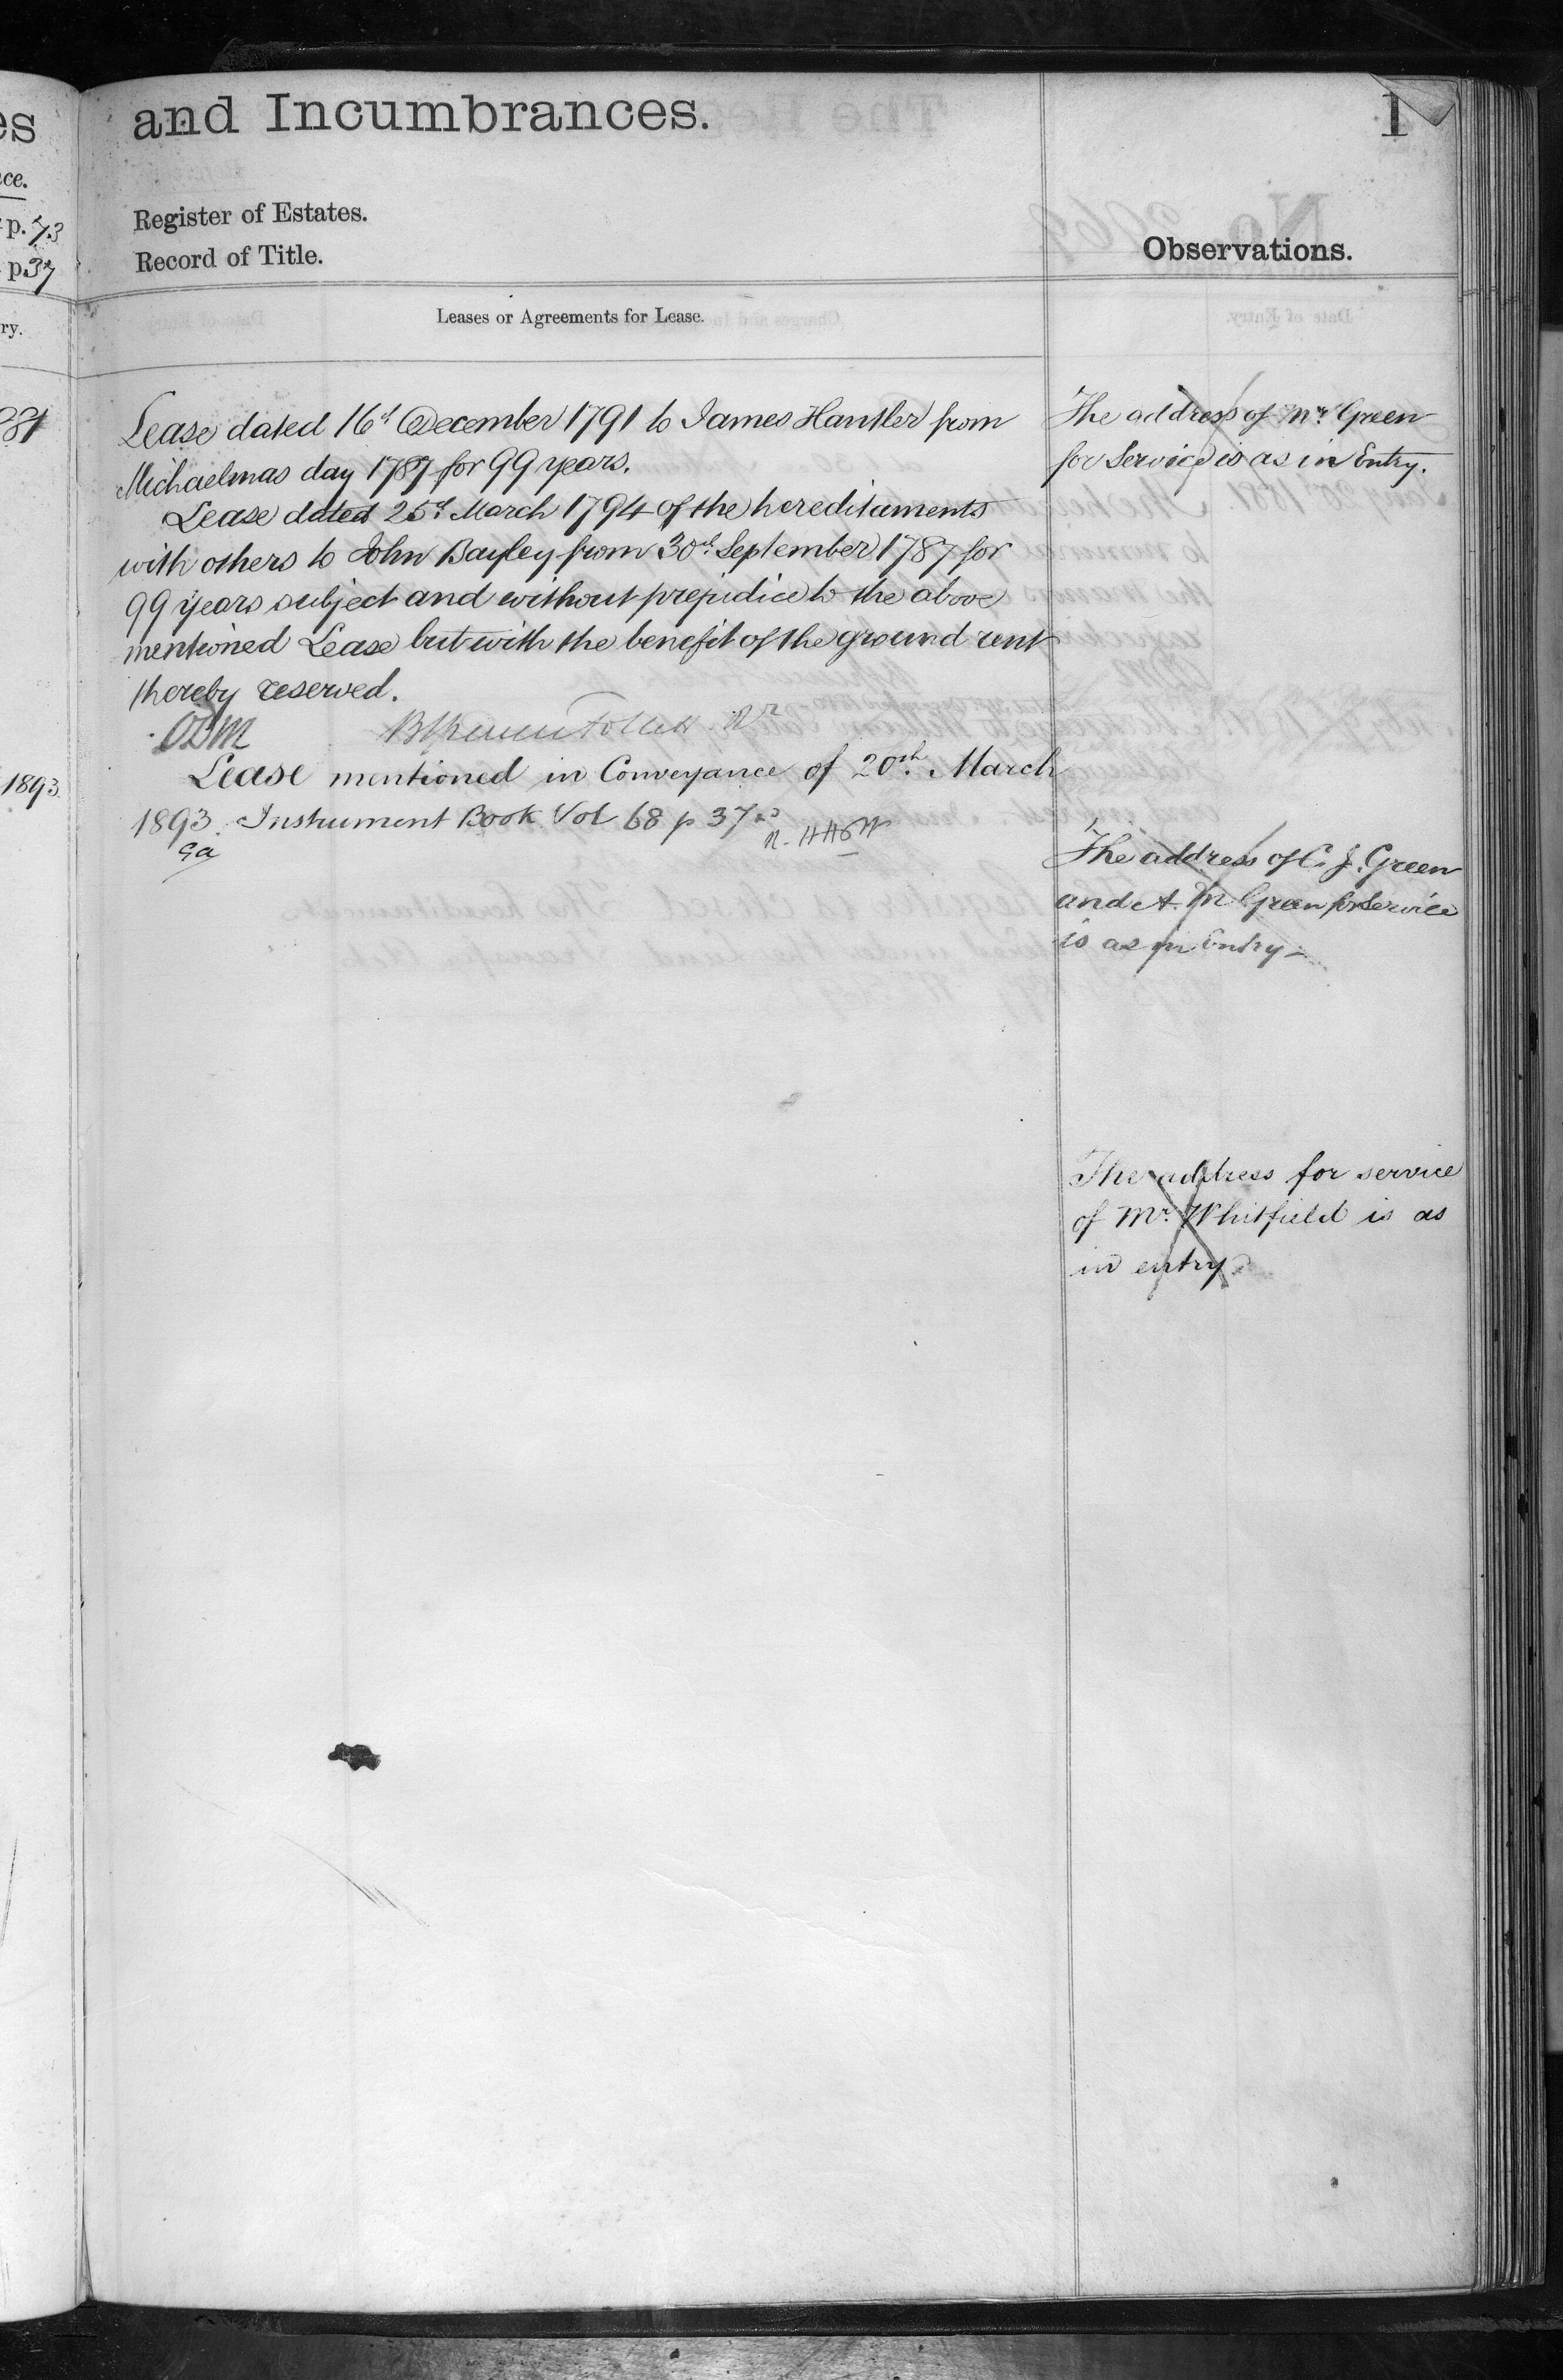 es
ce.
p. 73
p 37
ry.
1893
and Incumbrances.
1
Register of Estates.
Record of Title.
Observations.
Leases or Agreements for Lease.
Lease dated 16th December 1791 to James Hantler from
Michaelmas day 1787 for 99 years.
Lease dated 25th March 1794 of the hereditaments
with others to John Bayley from 30th September 1787 for
99 years subject and without prejudice to the above
mentioned Lease but with the benefit of the ground rent
thereby reserved.
ODM
Lease mentioned in Conveyance of 20th March
1893. Instrument Book Vol 68 p 37
The address of Mr Green
for Service is as in Entry.
The address of C. J. Green
and A. M. Green for Service
is as in Entry
The address for service
of Mr. Whitfield is as
in entry